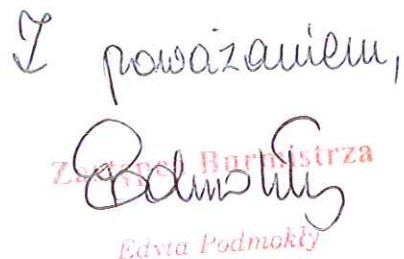 Z poważaniem,
Zastępca Burmistrza
Podmokły
Edyta Podmokły